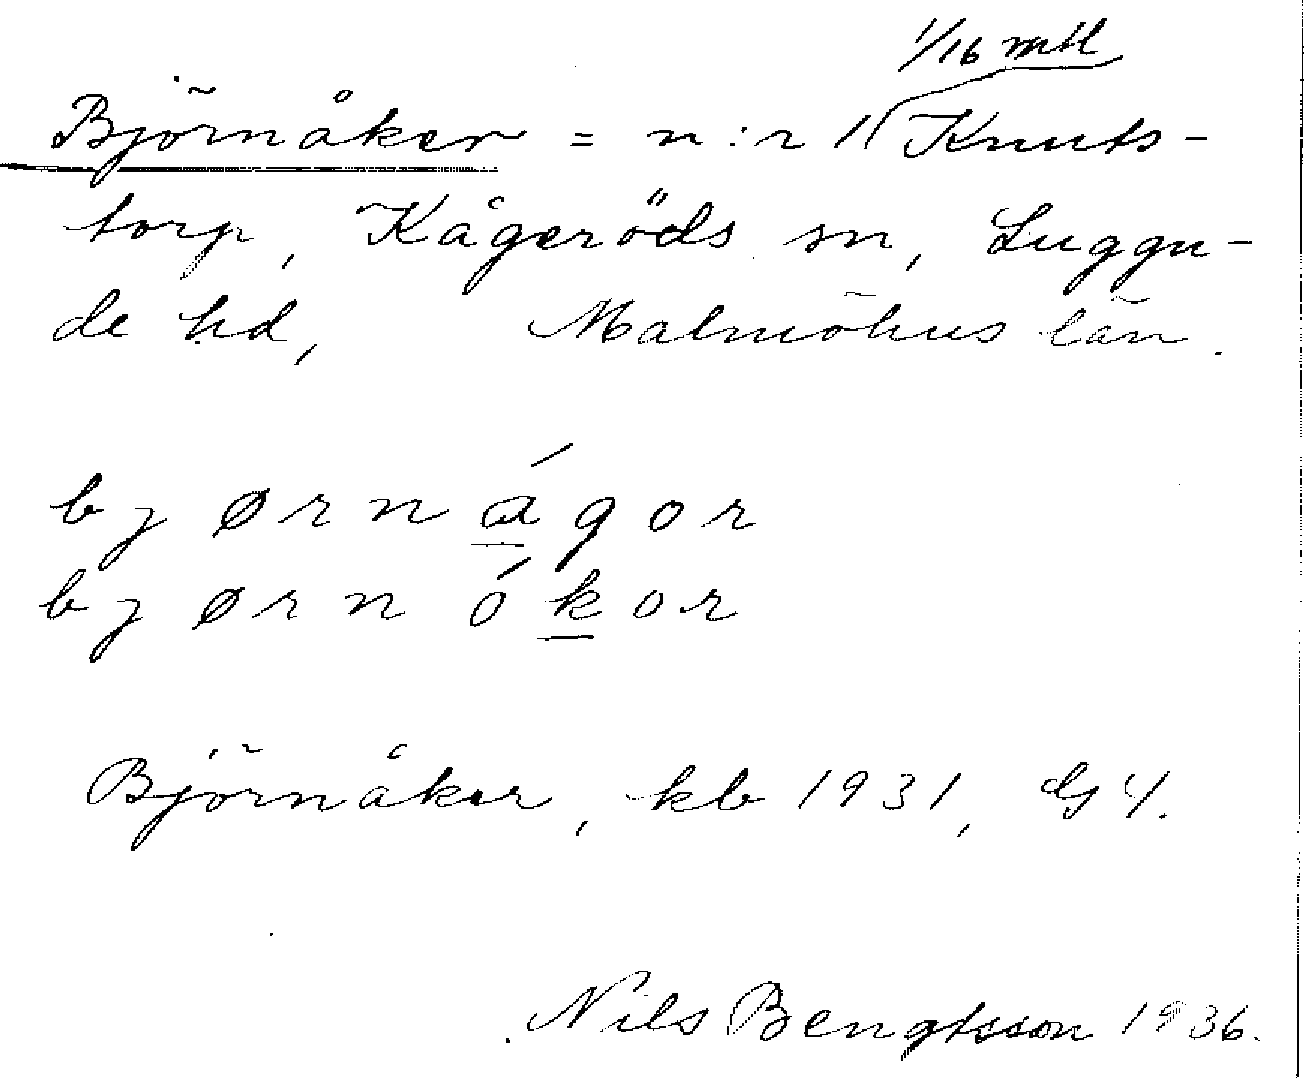 1/16 mtl
Björnåker = n:r 1 Knuts-
torp, Kågeröds sn, Luggu-
de hd, Malmöhus län.
bjørnágor
bjørnókor
Björnåker, kb 1931, G 4.
Nils Bengtsson 1936.